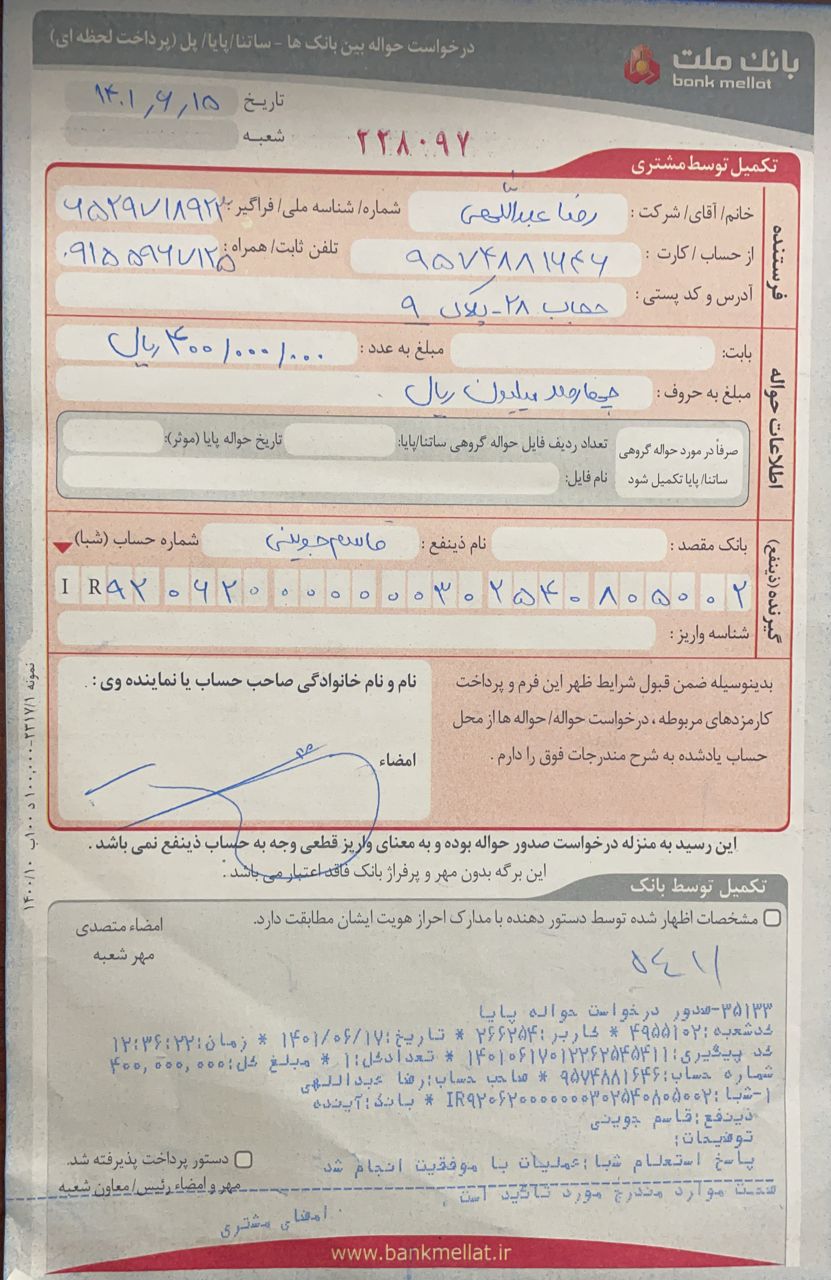 بانک ملت
bank mellat
درخواست حواله بین بانک ها - ساتنا/پایا/پل (پرداخت لحظه ای)
تاریخ ۱۴۰۱/۶/۱۵
شعبه
۲۲۸۰۹۷
تکمیل توسط مشتری
فرستنده
خانم/آقای/شرکت: رضا عبداللهی شماره/شناسه ملی/فراگیر:
از حساب/کارت: ۹۵۷۴۸۸۱۶۴۶ تلفن ثابت/همراه: ۰۹۱۵۵۹۶۷۱۲۵
آدرس و کد پستی: حجاب ۲۸-پلاک ۹
اطلاعات حواله
بابت: مبلغ به عدد: ۴۰۰/۰۰۰/۰۰۰ ریال
مبلغ به حروف: چهارصد میلیون ریال
صرفاً در مورد حواله گروهی ساتنا/پایا تکمیل شود
تعداد ردیف فایل حواله گروهی ساتنا/پایا: تاریخ حواله پایا (موثر):
نام فایل:
گیرنده (ذینفع)
بانک مقصد: نام ذینفع: قاسم جوینی شماره حساب (شبا)
IR۹۲۰۶۲۰۰۰۰۰۰۰۳۰۲۵۴۰۸۰۵۰۰۲
شناسه واریز:
بدینوسیله ضمن قبول شرایط ظهر این فرم و پرداخت
کارمزدهای مربوطه، درخواست حواله/حواله ها از محل
حساب یادشده به شرح مندرجات فوق را دارم.
نام و نام خانوادگی صاحب حساب یا نماینده وی:
امضاء
این رسید به منزله درخواست صدور حواله بوده و به معنای واریز قطعی وجه به حساب ذینفع نمی باشد.
این برگه بدون مهر و پرفراژ بانک فاقد اعتبار می باشد.
تکمیل توسط بانک
مشخصات اظهار شده توسط دستور دهنده با مدارک احراز هویت ایشان مطابقت دارد.
امضاء متصدی
مهر شعبه
۳۵۱۳۳-صدور درخواست حواله پایا
کدشعبه:۴۹۵۵۱۰۲ * کاربر:۲۶۶۲۵۴ * تاریخ:۱۴۰۱/۰۶/۱۷ * زمان:۱۲:۳۶:۲۲
کد پیگیری:۱۴۰۱۰۶۱۷۰۱۲۲۶۲۵۴۵۴۱۱ * تعدادکل:۱ * مبلغ کل:۴۰۰,۰۰۰,۰۰۰
شماره حساب:۹۵۷۴۸۸۱۶۴۶ * صاحب حساب:رضا عبداللهی
۱-شبا:IR۹۲۰۶۲۰۰۰۰۰۰۰۳۰۲۵۴۰۸۰۵۰۰۲ * بانک:آینده
ذینفع:قاسم جوینی
توضیحات:
پاسخ استعلام شبا:عملیات با موفقیت انجام شد
صحت موارد مندرج مورد تائید است
امضای مشتری
دستور پرداخت پذیرفته شد.
مهر و امضاء رئیس/معاون شعبه
www.bankmellat.ir
نمونه ۲۳۱۷/۱-۱۰۰,۰۰۰ د ۱۰۰ب ۱۴۰۰/۱۰